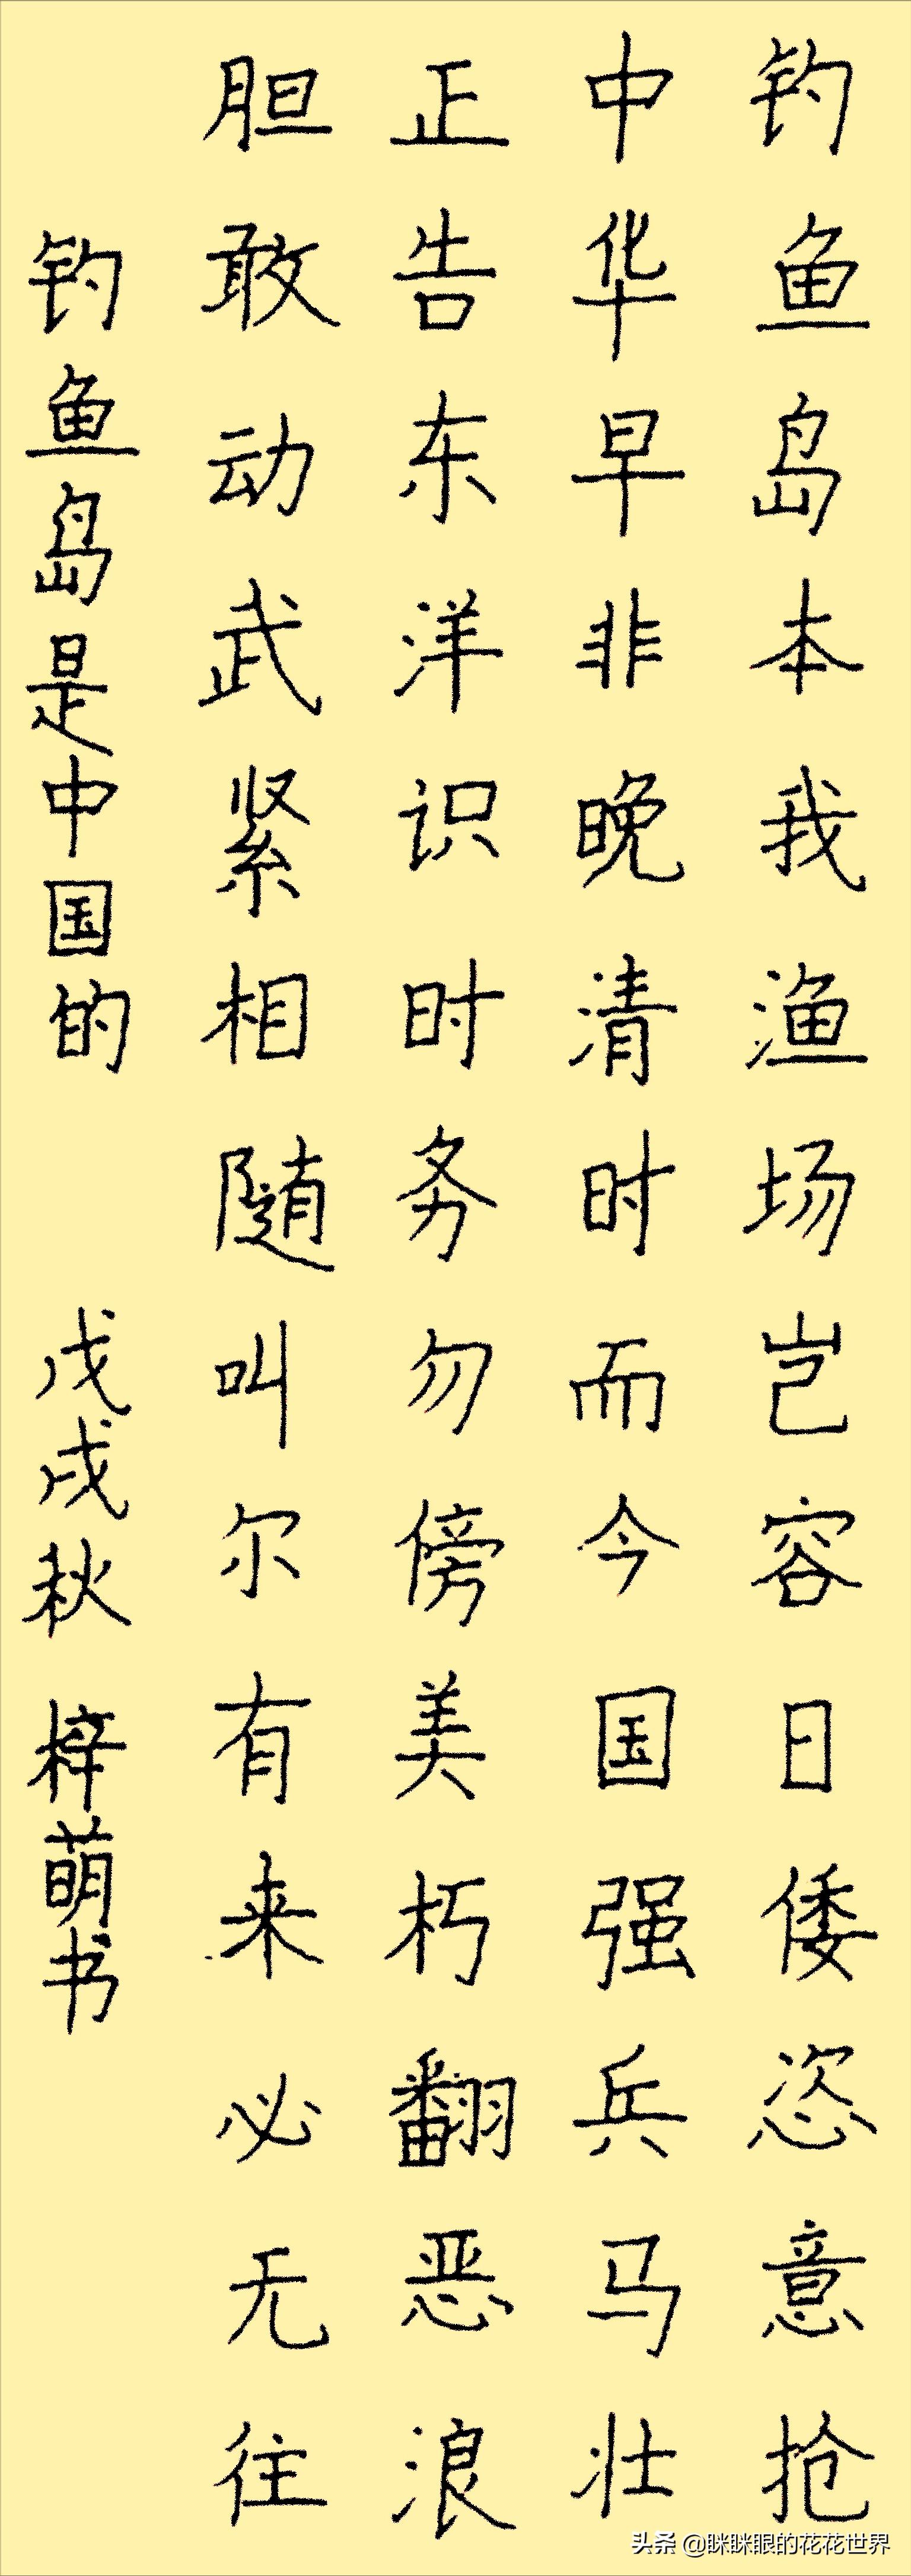 钓鱼岛本我渔场岂容日倭恣意抢
中华早非晚清时而今国强兵马壮
正告东洋识时务勿傍美朽翻恶浪
胆敢动武紧相随叫尔有来必无往
钓鱼岛是中国的 戊戌秋 梓萌书
头条 @眯眯眼的花花世界